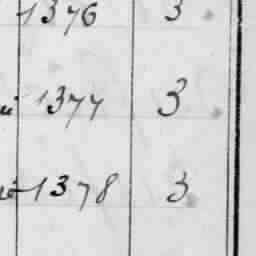 1376 3
1377 3
1378 3